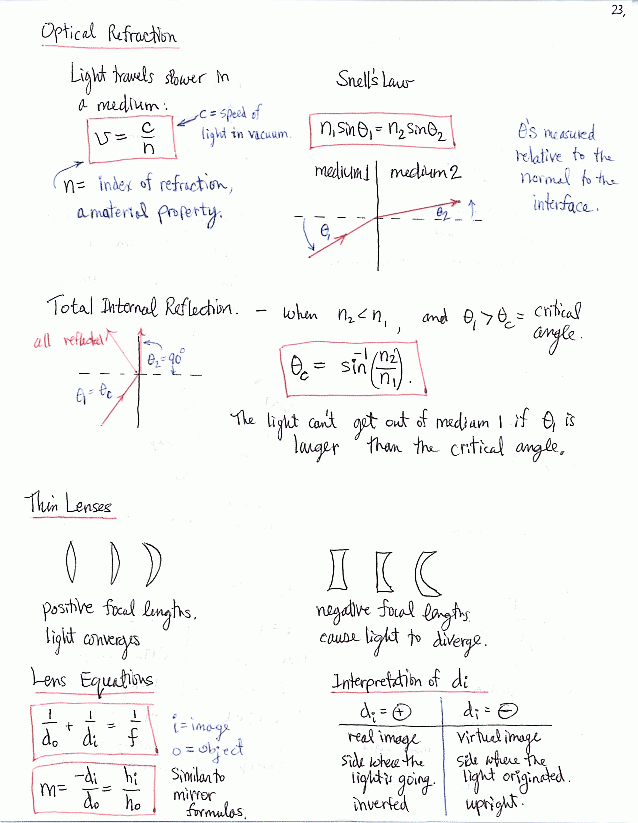 23,
Optical Refraction
Light travels slower in
a medium:
v = c/n
c = speed of
light in vacuum.
n = index of refraction,
a material property.
Snell's Law
n₁sinθ₁ = n₂sinθ₂
medium 1 | medium 2
θ₁
θ₂
θ's measured
relative to the
normal to the
interface.
Total Internal Reflection. – when n₂ < n₁, and θ₁ > θc = critical
angle.
all reflected
θ₂ = 90°
θ₁ = θc
θc = sin⁻¹(n₂/n₁).
The light can't get out of medium 1 if θ₁ is
larger than the critical angle.
Thin Lenses
positive focal lengths.
light converges
negative focal lengths
cause light to diverge.
Lens Equations
1/do + 1/di = 1/f
i = image
o = object
m = -di/do = hi/ho
Similar to
mirror
formulas.
Interpretation of di
di = ⊕
real image
side where the
light is going.
inverted
di = ⊖
virtual image
side where the
light originated.
upright.